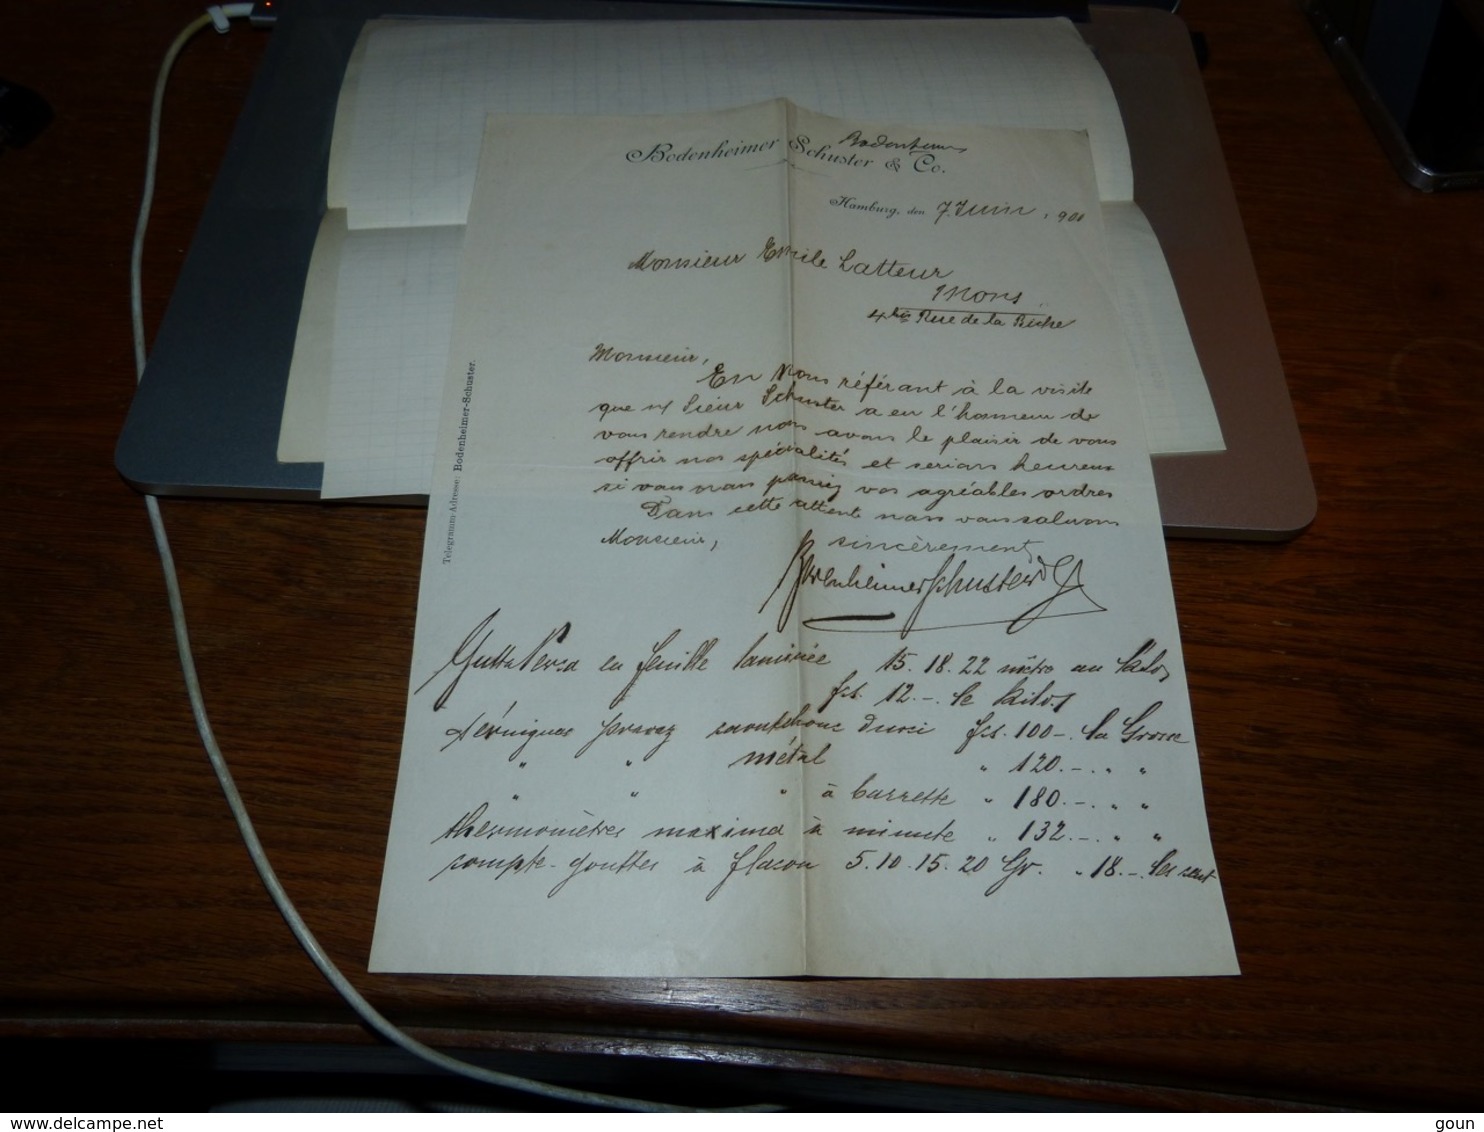 Bodenheimer
Bodenheimer Schuster & Co.
Hamburg, den 7 Juin 1901
Monsieur Emile Latteur
Mons
4bis Rue de la Biche
Monsieur,
En nous référant à la visite
que n/ Sieur Schuster a eu l'honneur de
vous rendre nous avons le plaisir de vous
offrir nos spécialités et serions heureux
si vous nous passiez vos agréables ordres
Dans cette attente nous vous saluons
Monsieur, sincèrement
Bodenheimer Schuster & Co
Telegramm-Adresse: Bodenheimer-Schuster.
Gutta Perca en feuille laminée 15. 18. 22 mètre au kilo,
fcs. 12.- le kilo,
séringues pravaz caoutchouc durci fcs. 100-. la Grosse
" " métal " 120.-. " "
" " " à barrette " 180.-. " "
thermomètres maxima à minute " 132-. " "
compte-gouttes à flacon 5. 10. 15. 20 Gr. " 18.-. les cent
www.delcampe.net
goun